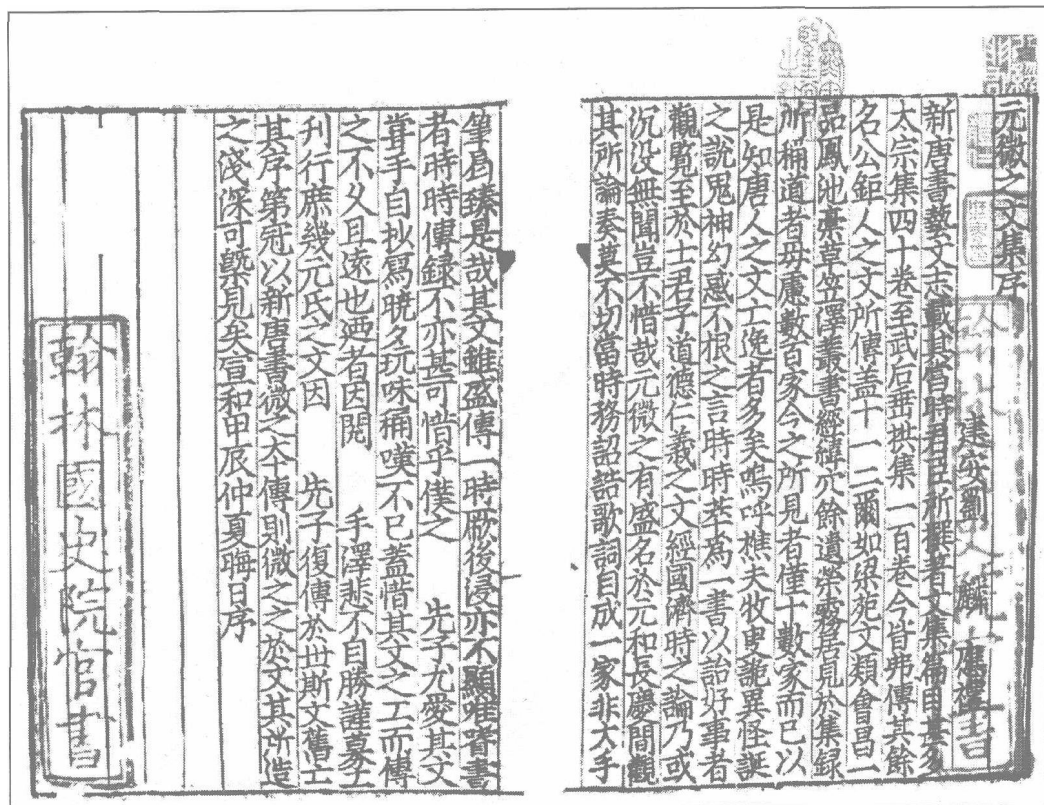 元微之文集序
建安劉 麟 應禮
新唐書藝文志載其當時君臣所撰著文集篇目甚多
太宗集四十卷至武后垂拱集一百卷今皆弗傳其餘
名公鉅人之文所傳蓋十一二爾如梁苑文類會昌一
品鳳池藁草笠澤叢書經緯冗餘遺榮霧居見於集録
所稱道者毋慮數百家今之所見者僅十數家而已以
是知唐人之文亡逸者多矣嗚呼樵夫牧叟詭異怪誕
之說鬼神幻惑不根之言時時萃為一書以詒好事者
觀覧至於士君子道德仁義之文經國濟時之論乃或
沉没無聞豈不惜哉元微之有盛名於元和長慶間觀
其所論奏莫不切當時務詔誥歌詞自成一家非大手
筆曷臻是哉其文雖盛傳一時厥後浸亦不顯唯嗜書
者時時傳録不亦甚可惜乎僕之 先子尤愛其文
嘗手自抄寫曉夕玩味稱嘆不已蓋惜其文之工而傳
之不乆且逺也廼者因閱 手澤悲不自勝謹募工
刋行庶幾元氏之文因 先子復傳於世斯文舊亡
其序第冠以新唐書微之本傳則微之之於文其所造
之淺深可槩見矣宣和甲辰仲夏晦日序
翰林國史院官書